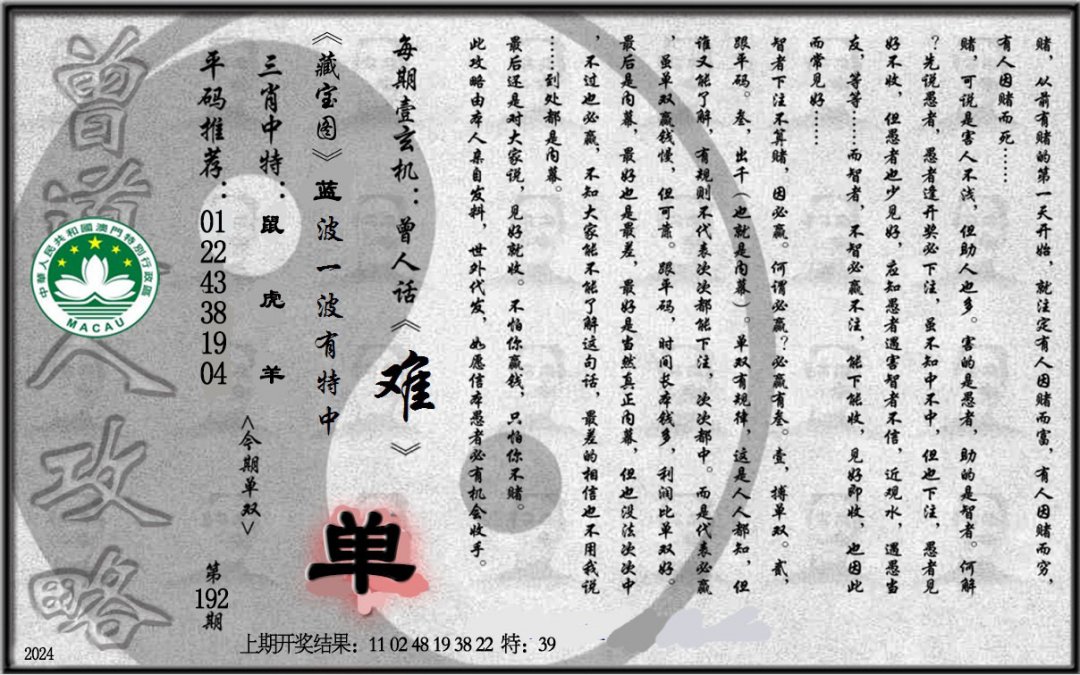 赌，从前有赌的第一天开始，就注定有人因赌而富，有人因赌而穷，
有人因赌而死……
赌，可说是害人不浅，但助人也多。害的是愚者，助的是智者。何解
？先说愚者，愚者逢开奖必下注，虽不知中不中，但也下注，愚者见
好不收，但愚者也少见好，应知愚者遇害智者不信，近观水，遇愚当
友，等等……而智者，不智必赢不注，能下能收，见好即收，也因此
而常见好……
智者下注不算赌，因必赢。何谓必赢？必赢有叁。壹，搏单双。贰，
跟平码。叁，出千（也就是内幕）。单双有规律，这是人人都知，但
谁又能了解，有规则不代表次次都能下注，次次都中。而是代表必赢
，虽单双赢钱慢，但可靠。跟平码，时间长本钱多，利润比单双好。
最后是内幕，最好也是最差，最好是当然真正内幕，但也没法次次中
，不过也必赢，不知大家能不能了解这句话，最差的相信也不用我说
……到处都是内幕。
最后还是对大家说，见好就收。不怕你赢钱，只怕你不赌。
此攻略由本人亲自发料，世外代发，如愿信本愚者必有机会收手。
每期壹玄机：曾人话《难》
《藏宝图》蓝波一波有特中
单
三肖中特：鼠 虎 羊
<今期单双>
平码推荐：01 22 43 38 19 04
第192期
曾道人攻略
中華人民共和國澳門特別行政區
MACAU
上期开奖结果：11 02 48 19 38 22 特：39
2024